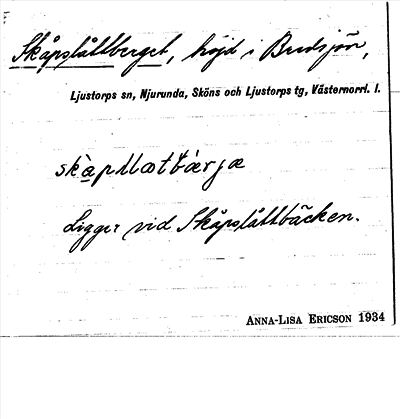 Skåpslåttberget, höjd i Bredsjön,
Ljustorps sn, Njurunda, Sköns och Ljustorps tg, Västernorrl. l.
Ligger vid Skåpslåttbäcken.
ANNA-LISA ERICSON 1934